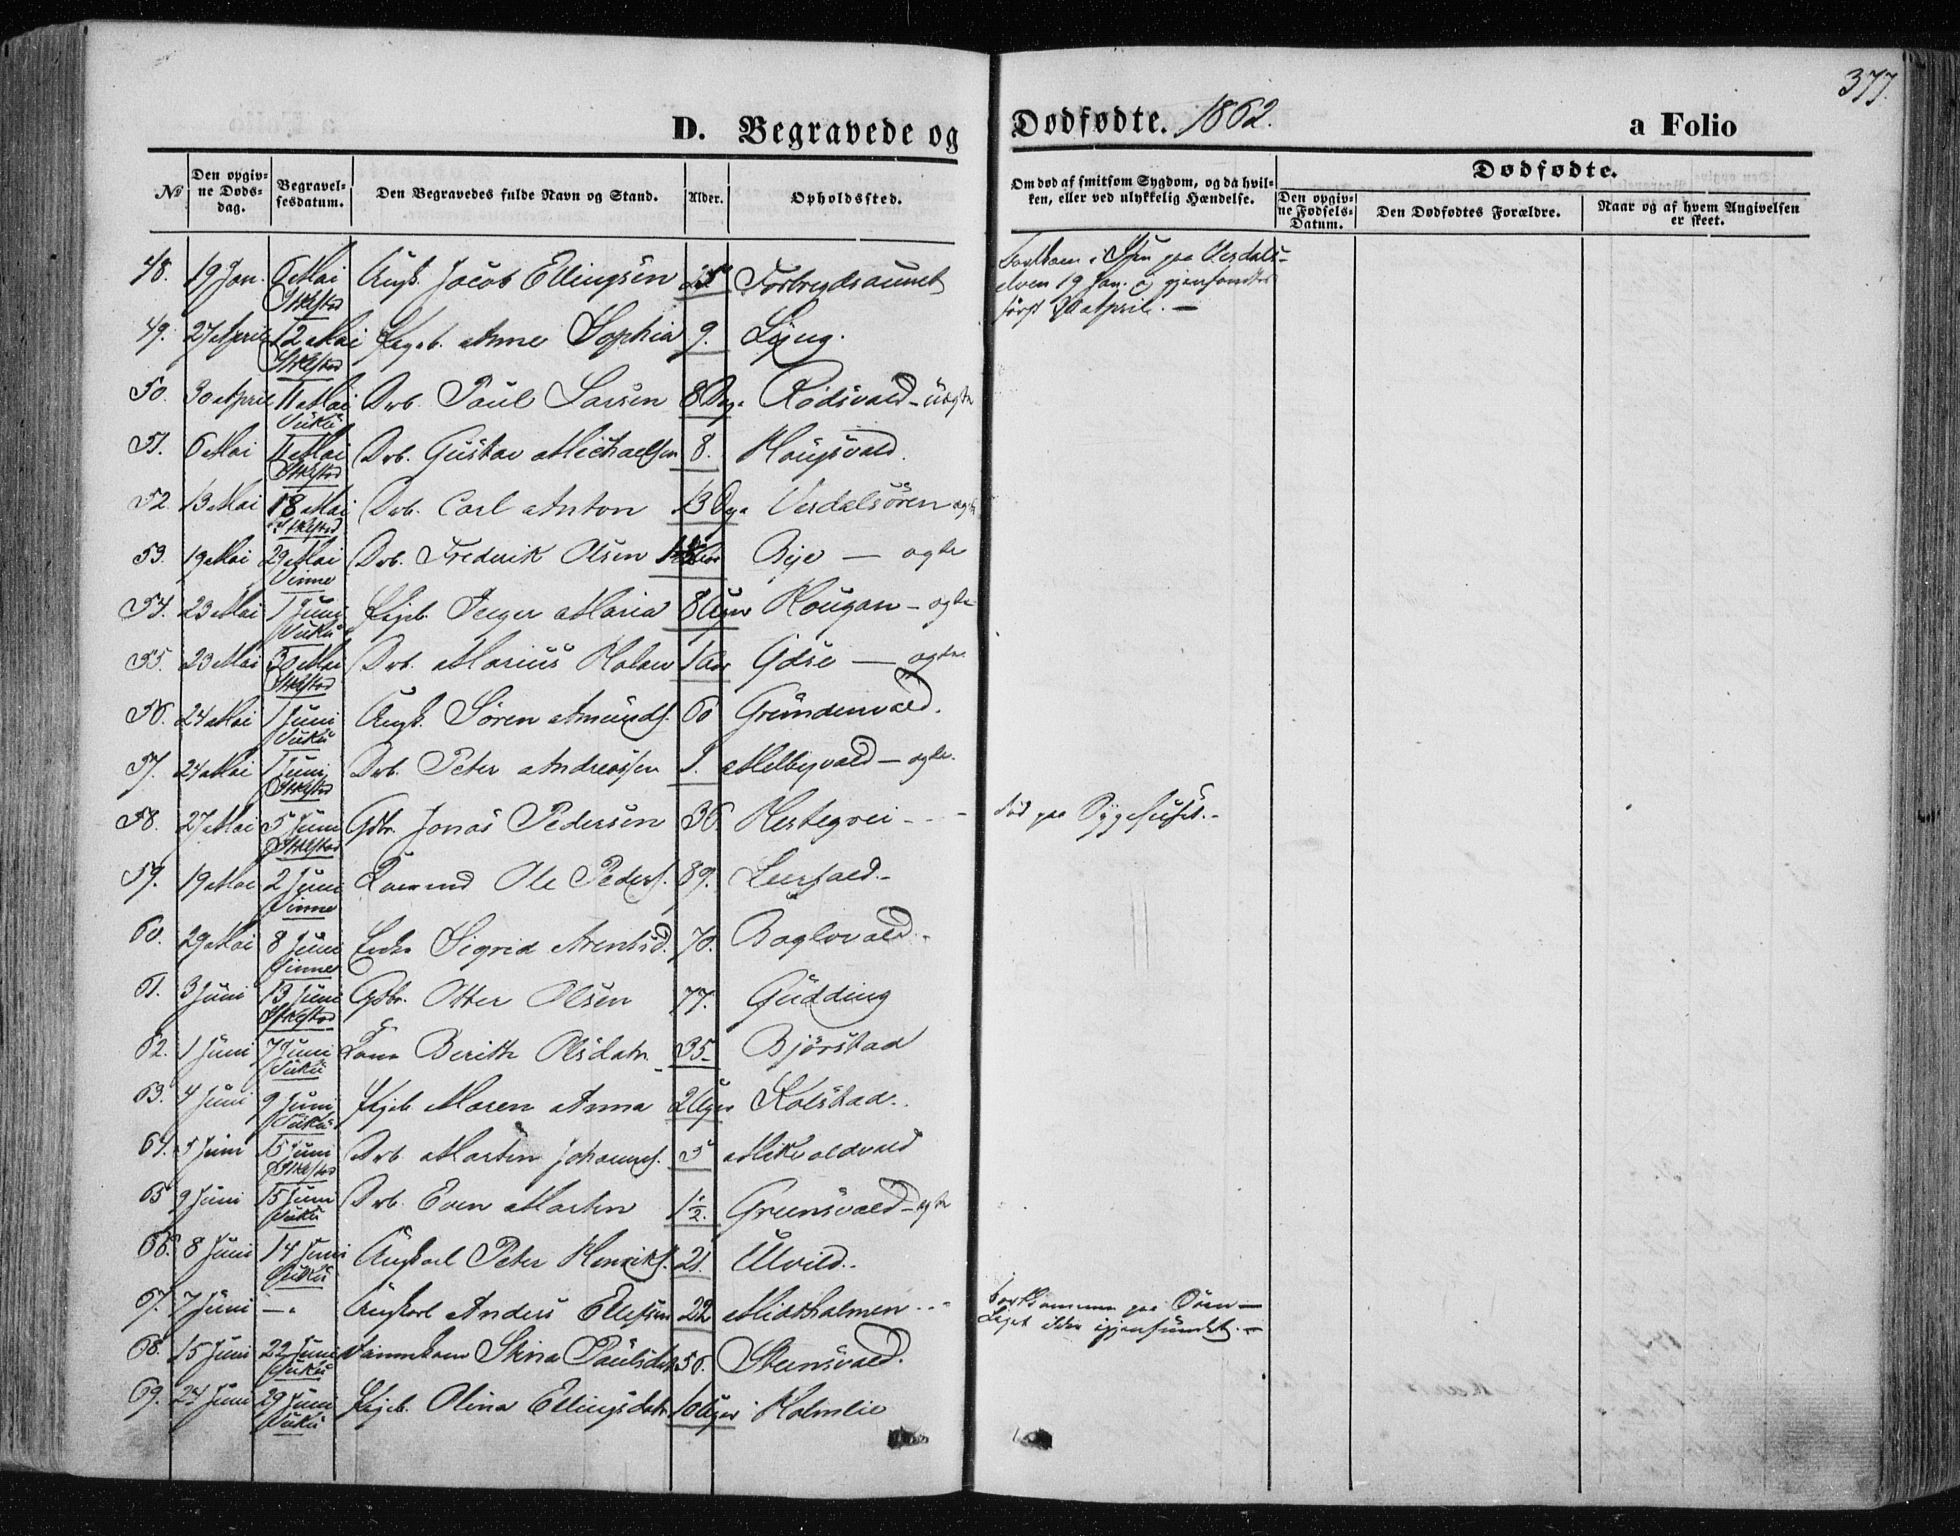 377.
D. Begravede og Dødfødte. 1862. a Folio
№ Den opgivne Døds-dag. Begravelsesdatum. Den Begravedes fulde Navn og Stand. Alder. Opholdssted. Om død af smitsom Sygdom, og da hvilken, eller ved ulykkelig Hændelse. Dødfødte. Den opgivne Fødsels-Datum. Den Dødfødtes Forældre. Naar og af hvem Angivelsen er skeet.
48. 19 Jan. 6 Mai Stklstad Ungk. Jacob Ellingsen Forbregdsaunet elven 19 Jan. først April.
49. 27 April 12 Mai Stklstad Pigeb. Anne Sophia 9. Ljng.
50. 30 April 11 Mai Vuku Drb. Paul Larsen 8 Dage Rødsvald - uægte
51. 6 Mai 11 Mai Stklstad Drb. Gustav Michaelsen 8. Hougsvald.
52. 13 Mai 18 Mai Stklstad Drb. Carl Anton 13 Dge Verdalsøren ægte
53. 19 Mai 29 Mai Vinne Drb. Frederik Olsen Bye — ægte
54. 23 Mai 1 Juni Vuku Pigeb. Inger Maria 8 Uger Hougan - ægte
55. 23 Mai 30 Mai Stklstad Drb. Marius 1 Aar — ægte
56. 24 Mai 1 Juni Vuku Ungk. Søren Amunds. 60 Grundenvald.
57. 24 Mai 1 Juni Stklstad Drb. Peter Andreassen 1. Melbyvald - ægte.
58. 27 Mai 5 Juni Stklstad Gdbr. Jonas Pedersen 36. Hestegrei - - - død paa Sygehuset.
59. 19 Mai 2 Juni Vinne Ole Peders. 89. Leirfald.
60. 29 Mai 8 Juni Vinne Enke Sigrid Arentsd. 70. Baglovald.
61. 3 Juni 13 Juni Stklstad Gdbr. Otter Olsen 77. Gudding
62. 1 Juni 7 Juni Vuku Kone Berith Olsdatr. 35 Bjørstad
63. 4 Juni 9 Juni Vuku Pigeb Maren Anna 2 Uger Kolstad.
64. 5 Juni 15 Juni Stklstad Drb. Martin Johannes. 5 Mikvoldvald
65 9 Juni 15 Juni Vuku Drb. Even Martin 1½. Greensvald - ægte
66. 8 Juni 14 Juni Vuku Ungkarl Peter Henriks. 21. Ulvild.
67. 7 Juni — Ungkarl Anders Ellefsen 22 Midtholmen - - - Bortkommen paa Søen — Liget ikke igjenfundet. —
68. 15 Juni 22 Juni Vuku Stina Paulsdatr 50. Steensvald.
69. 24 Juni 29 Juni Vuku Pigeb. Olina Ellingsdatr 16 Uger Holmlie